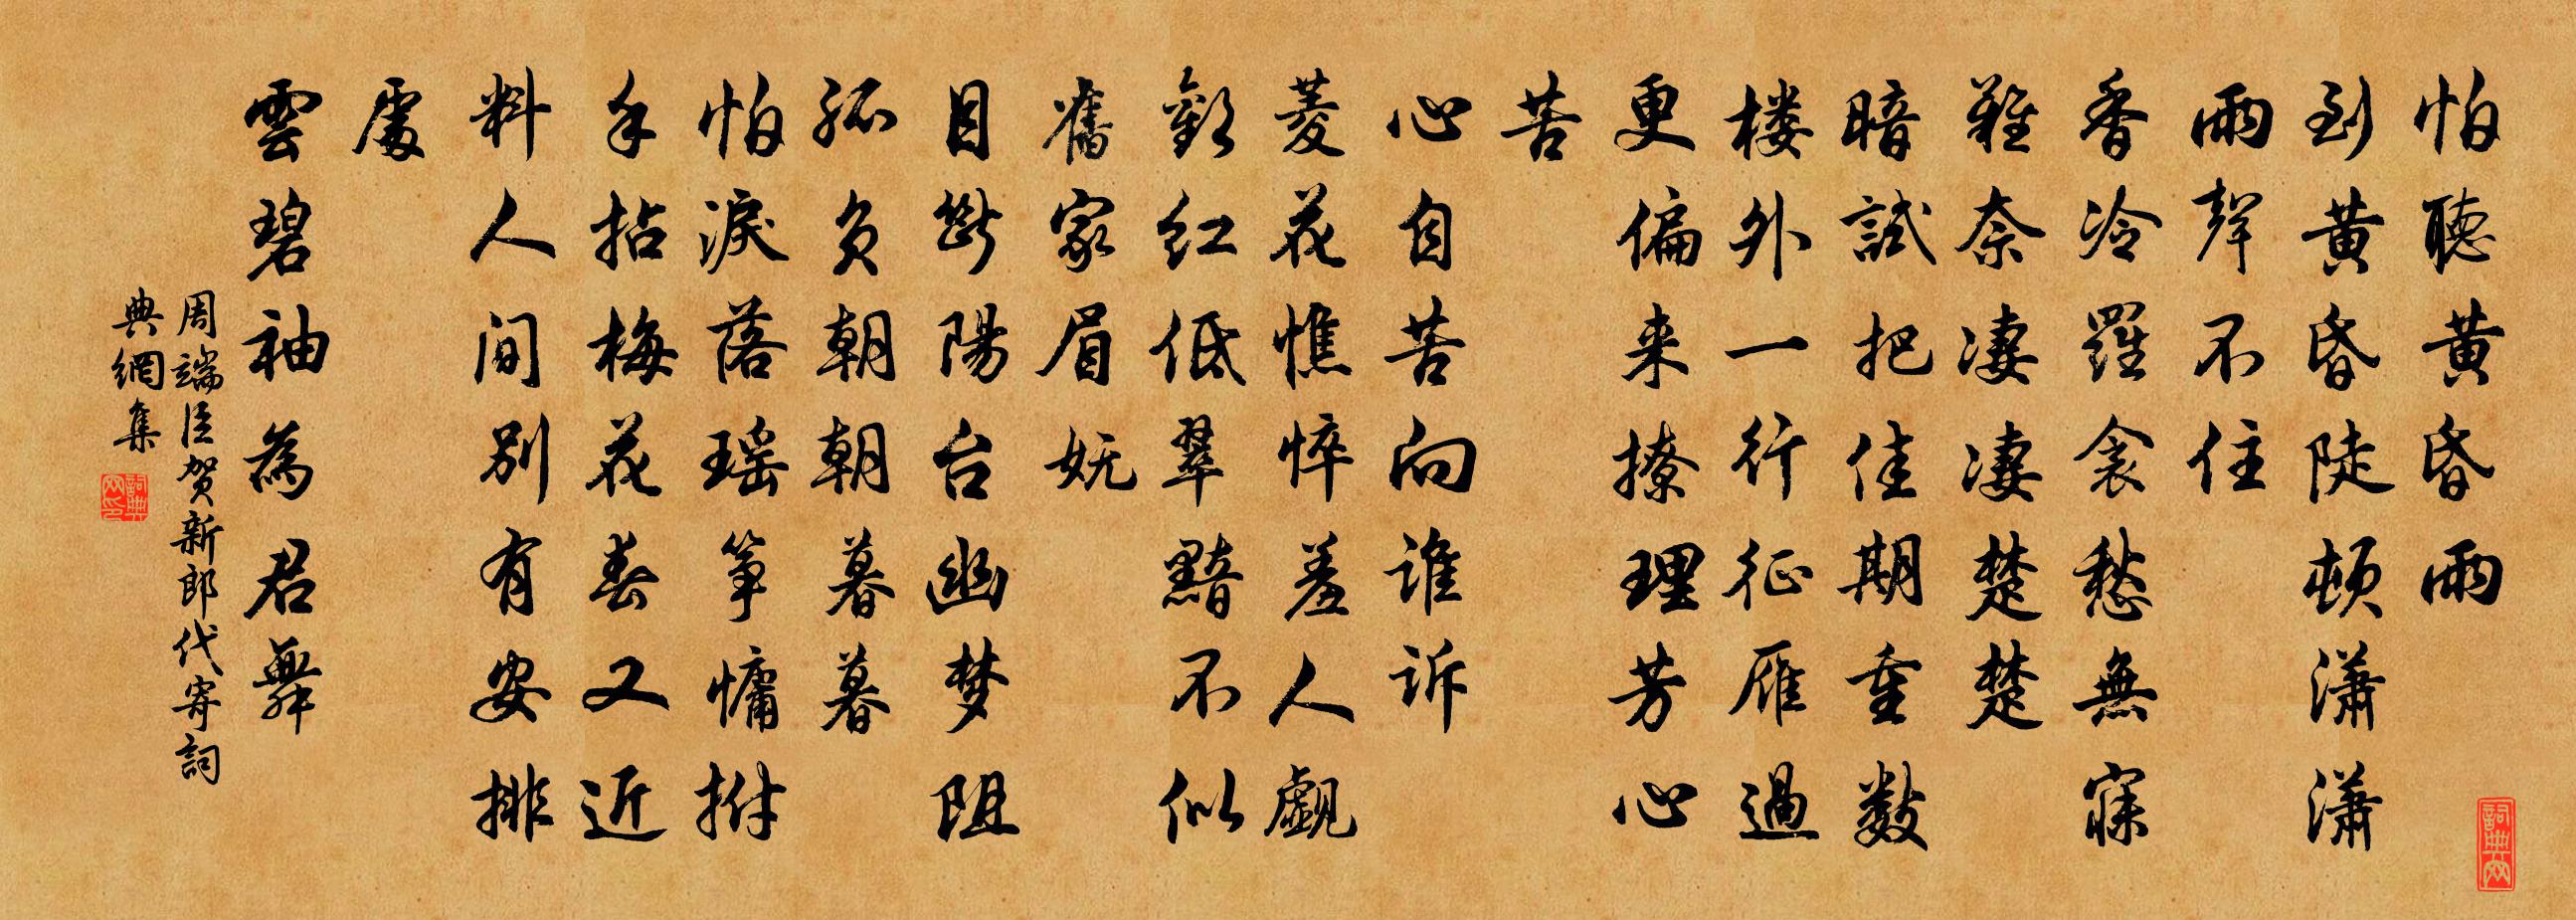 怕聽黄昏雨
到黄昏陡顿潇潇
雨聲不住
香冷羅衾愁無寐
難奈凄凄楚楚
暗試把佳期重数
楼外一行征雁過
更偏来撩理芳心
苦
心自苦向谁诉
菱花憔悴羞人觑
歡红低翠黯不似
舊家眉妩
目断陽台幽梦阻
孤负朝朝暮暮
怕淚落瑶筝慵拊
手拈梅花春又近
料人間别有安排
處
雲碧袖為君舞
周端臣贺新郎代寄詞
典網集
詞典网印
詞典网